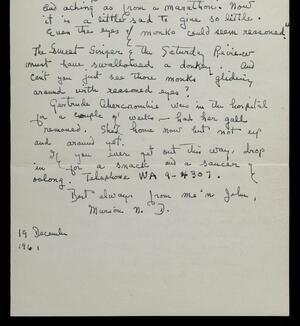 and aching as from a marathon. Now
it is a little sad to give so little.
Even the eyes of monks could seem reasoned"
The Sweet Singer & the Saturday Review
must have swallowed a donkey. And
can't you just see those monks gliding
around with reasoned eyes?
Gertrude Abercrombie was in the hospital
for a couple of weeks — had her gall
removed. She's home now but not up
and around yet.
If you ever get out this way, drop
in for a snack and a saucer of
oolong. Telephone WA 9-4307.
Best always from me 'n John,
Marion N. D.
19 December
1961